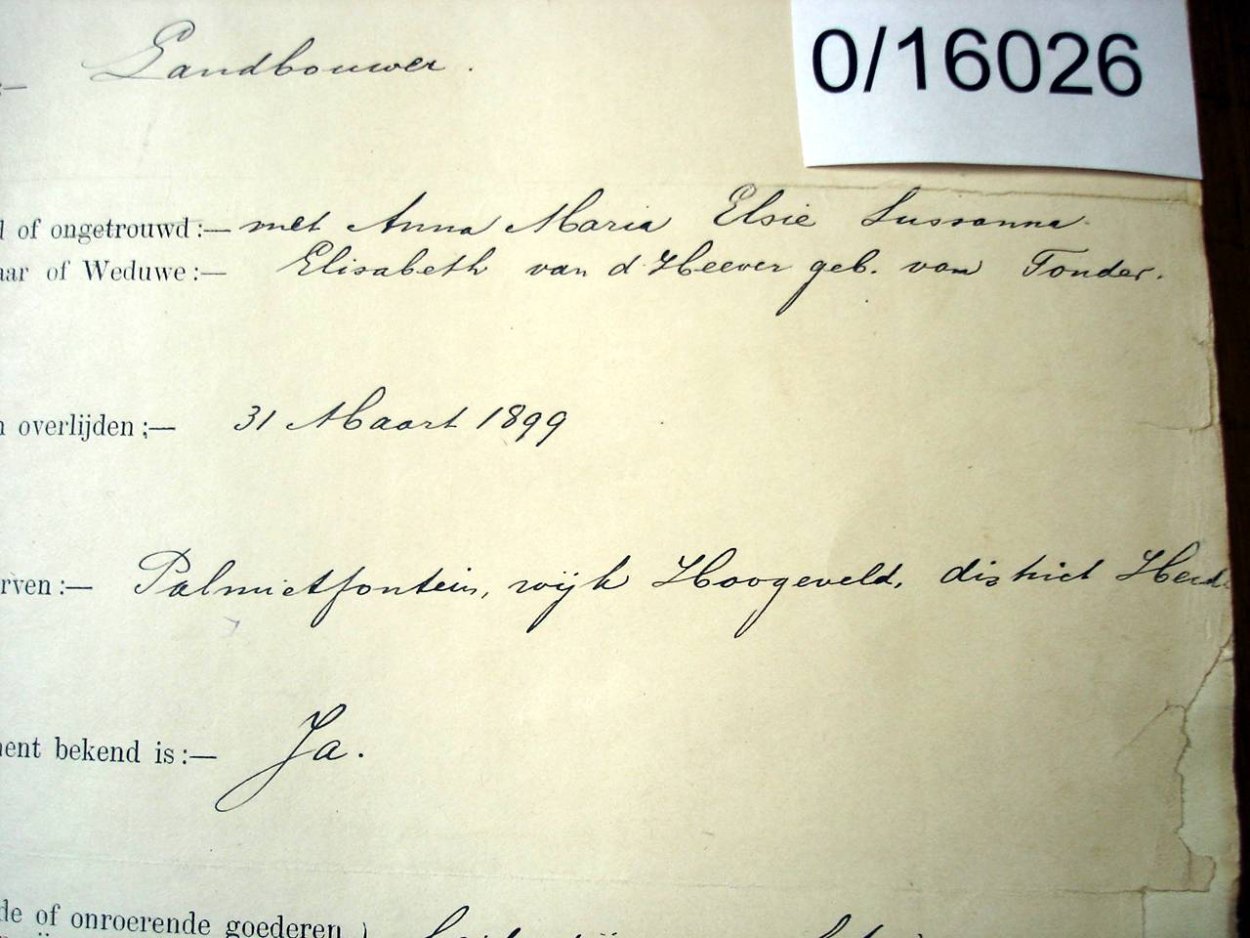 0/16026
:— Landbouwer.
d of ongetrouwd :— met Anna Maria Elsie Sussanna
aar of Weduwe :— Elisabeth van d Heever geb. van Tonder.
n overlijden ;— 31 Maart 1899
rven :— Palmietfontein, wijk Hoogeveld, district Heid
ment bekend is :— Ja.
de of onroerende goederen )